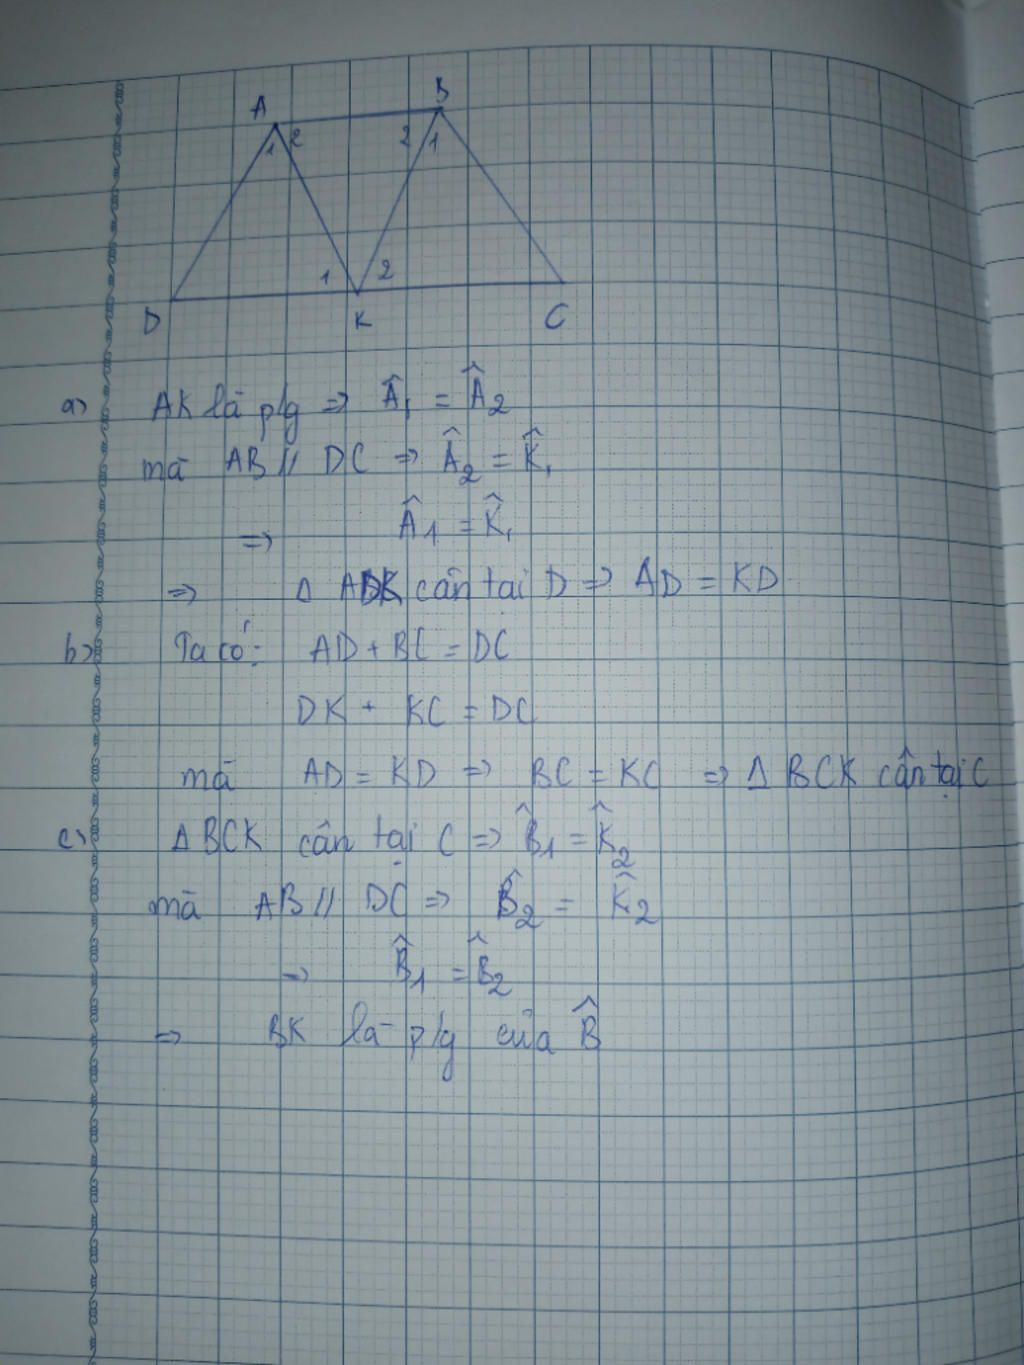 A B
1 2 2 1
1 2
D K C
a) AK là p/g => Â₁ = Â₂
mà AB // DC => Â₂ = K̂₁
=> Â₁ = K̂₁
=> Δ ADK cân tại D => AD = KD
b) Ta có: AD + BC = DC
DK + KC = DC
mà AD = KD => BC = KC => Δ BCK cân tại C
c) Δ BCK cân tại C => B̂₁ = K̂₂
mà AB // DC => B̂₂ = K̂₂
=> B̂₁ = B̂₂
=> BK là p/g của B̂